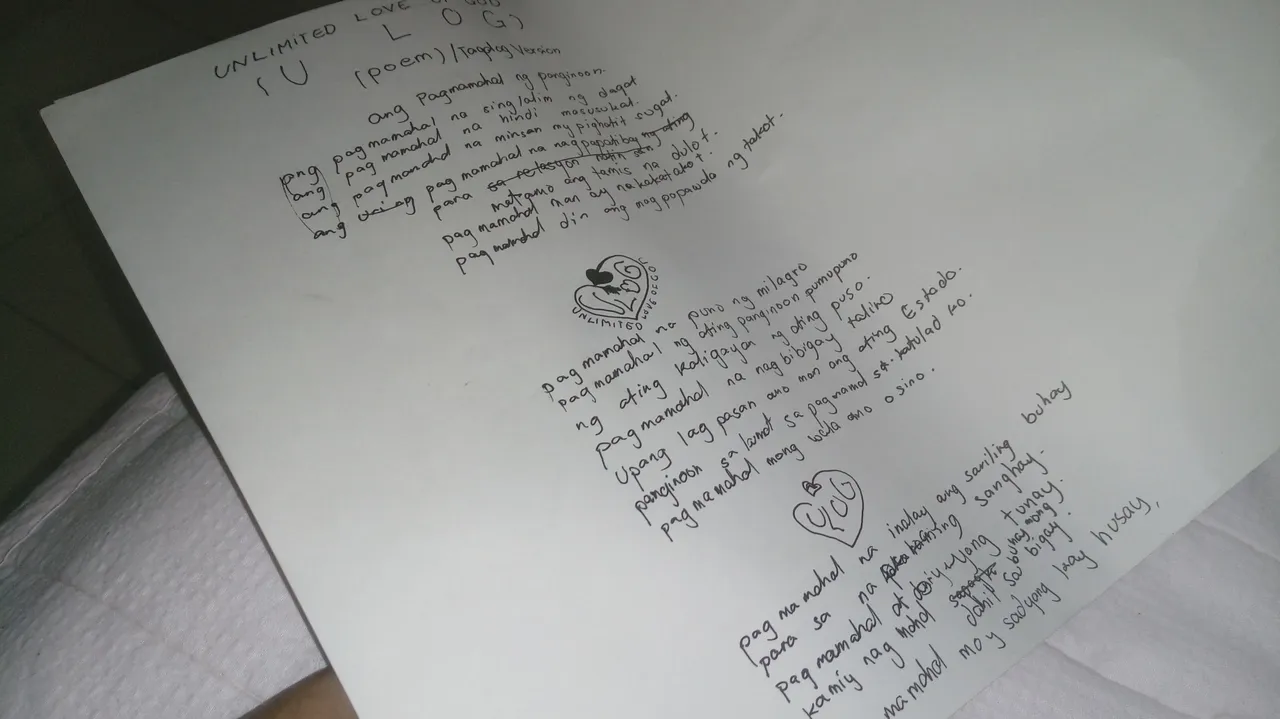 UNLIMITED LOVE OF GOD
(U L O G)
(poem)/Tagalog Version
ang Pagmamahal ng panginoon.
ang pag mamahal na singlalim ng dagat
ang pag mamahal na hindi masusukat.
ang pagmamahal na minsan my pighatit sugat.
ang pag mamahal na nagpapatibay ng ating
para sa relasyon natin
matamo ang tamis na dulot.
pag mamahal man ay nakakatakot.
pag mamahal din ang magpapawala ng takot.
ULOG
UNLIMITED LOVE OF GOD
pag mamahal na puno ng milagro
pag mamahal ng ating panginoon pumupuno
ng ating kaligayan ng ating puso.
pag mamahal na nagbibigay talino
Upang lag pasan ano man ang ating Estado.
panginoon salamat sa pagmamal sa katulad ko.
pag mamahal mong wala ano o sino.
ULOG
pag ma mahal na inalay ang sariling buhay
para sa na sanghay.
pag mamahal at tunay.
kamiy nag mahal buhay mong
dahil sa bigay.
mamahal moy sadyang kay husay,